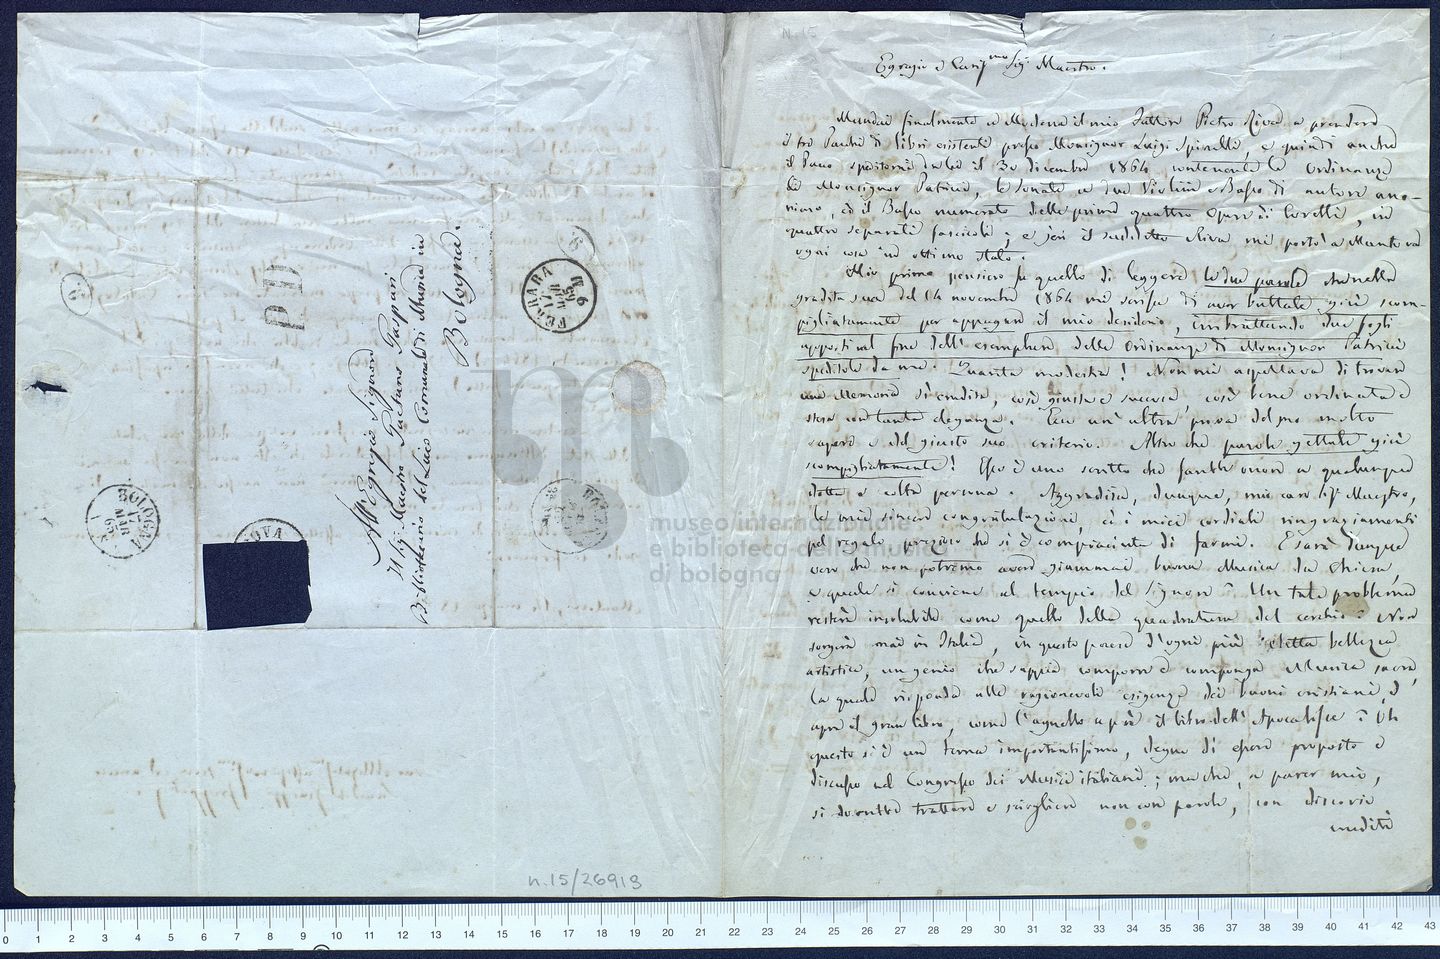 N. 15
Egregio e Caris.mo Sig.r Maestro.
Mandai finalmente a Modena il mio Fattore Pietro Riva a prendere
i tre Pacchi di libri esistenti presso Monsignor Luigi Spinelli, e quindi anche
il Pacco speditomi da Lei il 30 dicembre 1864 contenente le Ordinanze
di Monsignor Patrizi, le Sonate a due Violini e Basso di autore ano-
nimo, ed il Basso numerato delle prime quattro Opere di Corelli, in
quattro separati fascicoli; e jeri il suddetto Riva mi portò a Mantova
ogni cosa in ottimo stato.
Mio primo pensiero fu quello di leggere le due parole
gradita sua del 14 novembre 1864 mi scrisse di aver buttate giù scom-
pigliatamente per appagare il mio desiderio, imbrattando due fogli
apposti al fine dell'esemplare delle Ordinanze di Monsignor Patrizi
speditole da me. Quanta modestia! Non mi aspettava di trovare
una Memoria sì erudita, così giusta e succosa, così bene ordinata e
stesa con tanta eleganza. Ecco un'altra prova del suo molto
sapere e del giusto suo criterio. Altro che parole gettate giù
scompigliatamente! Esso è uno scritto che farebbe onore a qualunque
dotta e colta persona. Aggradisca, dunque, mio caro Sig.r Maestro,
le mie sincere congratulazioni, ed i miei cordiali ringraziamenti
pel regalo prezioso che si è compiaciuta di farmi. E sarà dunque
vero che non potremo avere giammai buona Musica da Chiesa,
e quale si conviene al tempio del Signore? Un tale problema
resterà insolubile come quello della quadratura del cerchio? Non
sorgerà mai in Italia, in questo paese d'ogni più eletta bellezza
artistica, un genio che sappia comporre e componga Musica sacra,
la quale risponda alle ragionevoli esigenze dei buoni cristiani, ed
apra il gran libro, come l'agnello aprì il libro dell'Apocalisse? Oh
questo sì è un tema importantissimo, degno di essere proposto e
discusso nel Congresso dei Musici italiani; ma che, a parer mio,
si dovrebbe trattare e sciogliere non con parole, con discorsi
eruditi
All'Egregio Signore
Il Sig.r Maestro Gaetano Gaspari
Bibliotecario del Liceo Comunale di Musica in
Bologna.
PD
FERRARA
BOLOGNA
17
MAR
65
museo internazionale
e biblioteca della musica
di bologna
n.15/26919
0 1 2 3 4 5 6 7 8 9 10 11 12 13 14 15 16 17 18 19 20 21 22 23 24 25 26 27 28 29 30 31 32 33 34 35 36 37 38 39 40 41 42 43